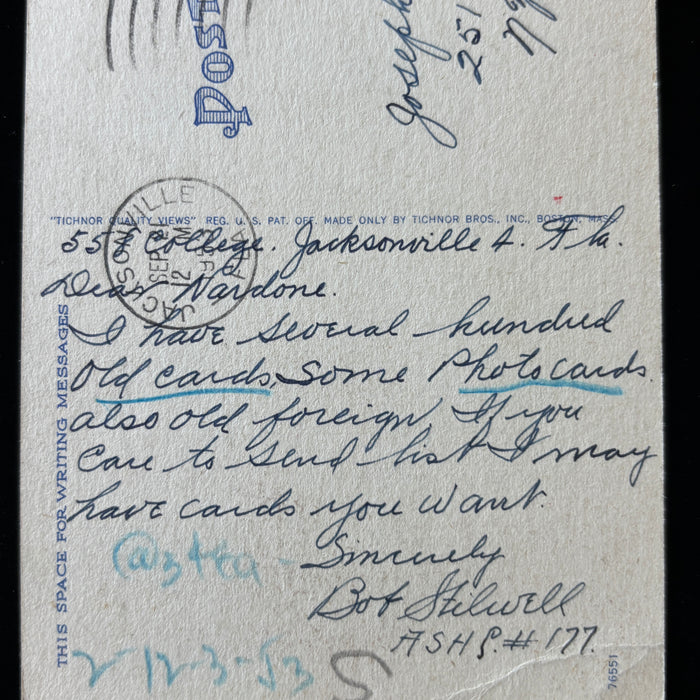 POST
Joseph
251
N.Y.
JACKSONVILLE
SEP
12
PM
FLA.
"TICHNOR QUALITY VIEWS" REG. U. S. PAT. OFF. MADE ONLY BY TICHNOR BROS., INC., BOSTON, MASS.
College. Jacksonville 4. Fla.
Dear Nardone.
I have several hundred
old cards, Some Photo cards.
also old foreign If you
care to send list I may
have cards you want.
Sincerely
Bob Stilwell
A.S.H.S. # 177.
THIS SPACE FOR WRITING MESSAGES
2-12-3-53
76551